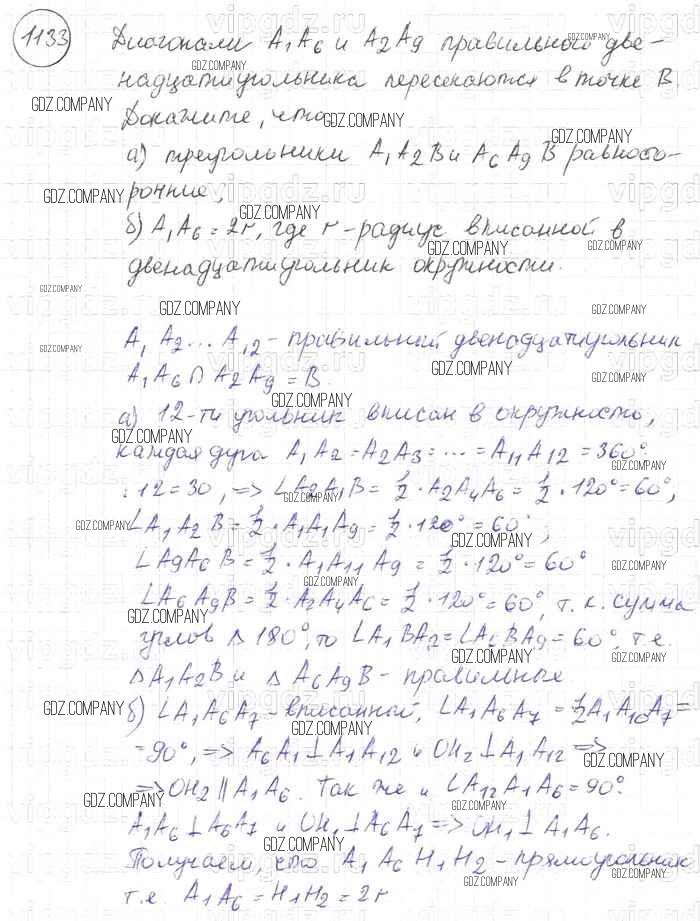 1133
Диагонали A₁A₆ и A₂A₉ правильного две-
надцатиугольника пересекаются в точке B.
Докажите, что
а) треугольники A₁A₂B и A₆A₉B равносто-
ронние;
б) A₁A₆ = 2r, где r - радиус вписанной в
двенадцатиугольник окружности.
A₁ A₂... A₁₂ - правильный двенадцатиугольник
A₁A₆ ∩ A₂A₉ = B.
а) 12-ти угольник вписан в окружность,
каждая дуга A₁A₂ = A₂A₃ = ... = A₁₁A₁₂ = 360°
: 12 = 30, => ∠A₂A₁B = 1/2 · A₂A₄A₆ = 1/2 · 120° = 60°,
∠A₁A₂B = 1/2 · A₁A₁A₉ = 1/2 · 120° = 60°,
∠A₉A₆B = 1/2 · A₁A₁₁A₉ = 1/2 · 120° = 60°
∠A₆A₉B = 1/2 · A₂A₄A₆ = 1/2 · 120° = 60°, т.к. сумма
углов △ 180°, то ∠A₁BA₂ = ∠A₆BA₉ = 60°, т.е.
△A₁A₂B и △A₆A₉B - правильные
б) ∠A₁A₆A₇ - вписанный, ∠A₁A₆A₇ = 1/2 A₁A₁₀A₇ =
= 90°, => A₆A₁ ⊥ A₁A₁₂ и OH₂ ⊥ A₁A₁₂ =>
=> OH₂ ∥ A₁A₆. Так же и ∠A₁₂A₁A₆ = 90°.
A₁A₆ ⊥ A₆A₇ и OH₁ ⊥ A₆A₇ => OH₁ ⊥ A₁A₆.
Получаем, что A₁A₆H₁H₂ - прямоугольник
т.е. A₁A₆ = H₁H₂ = 2r
GDZ.COMPANY
vipgdz.ru